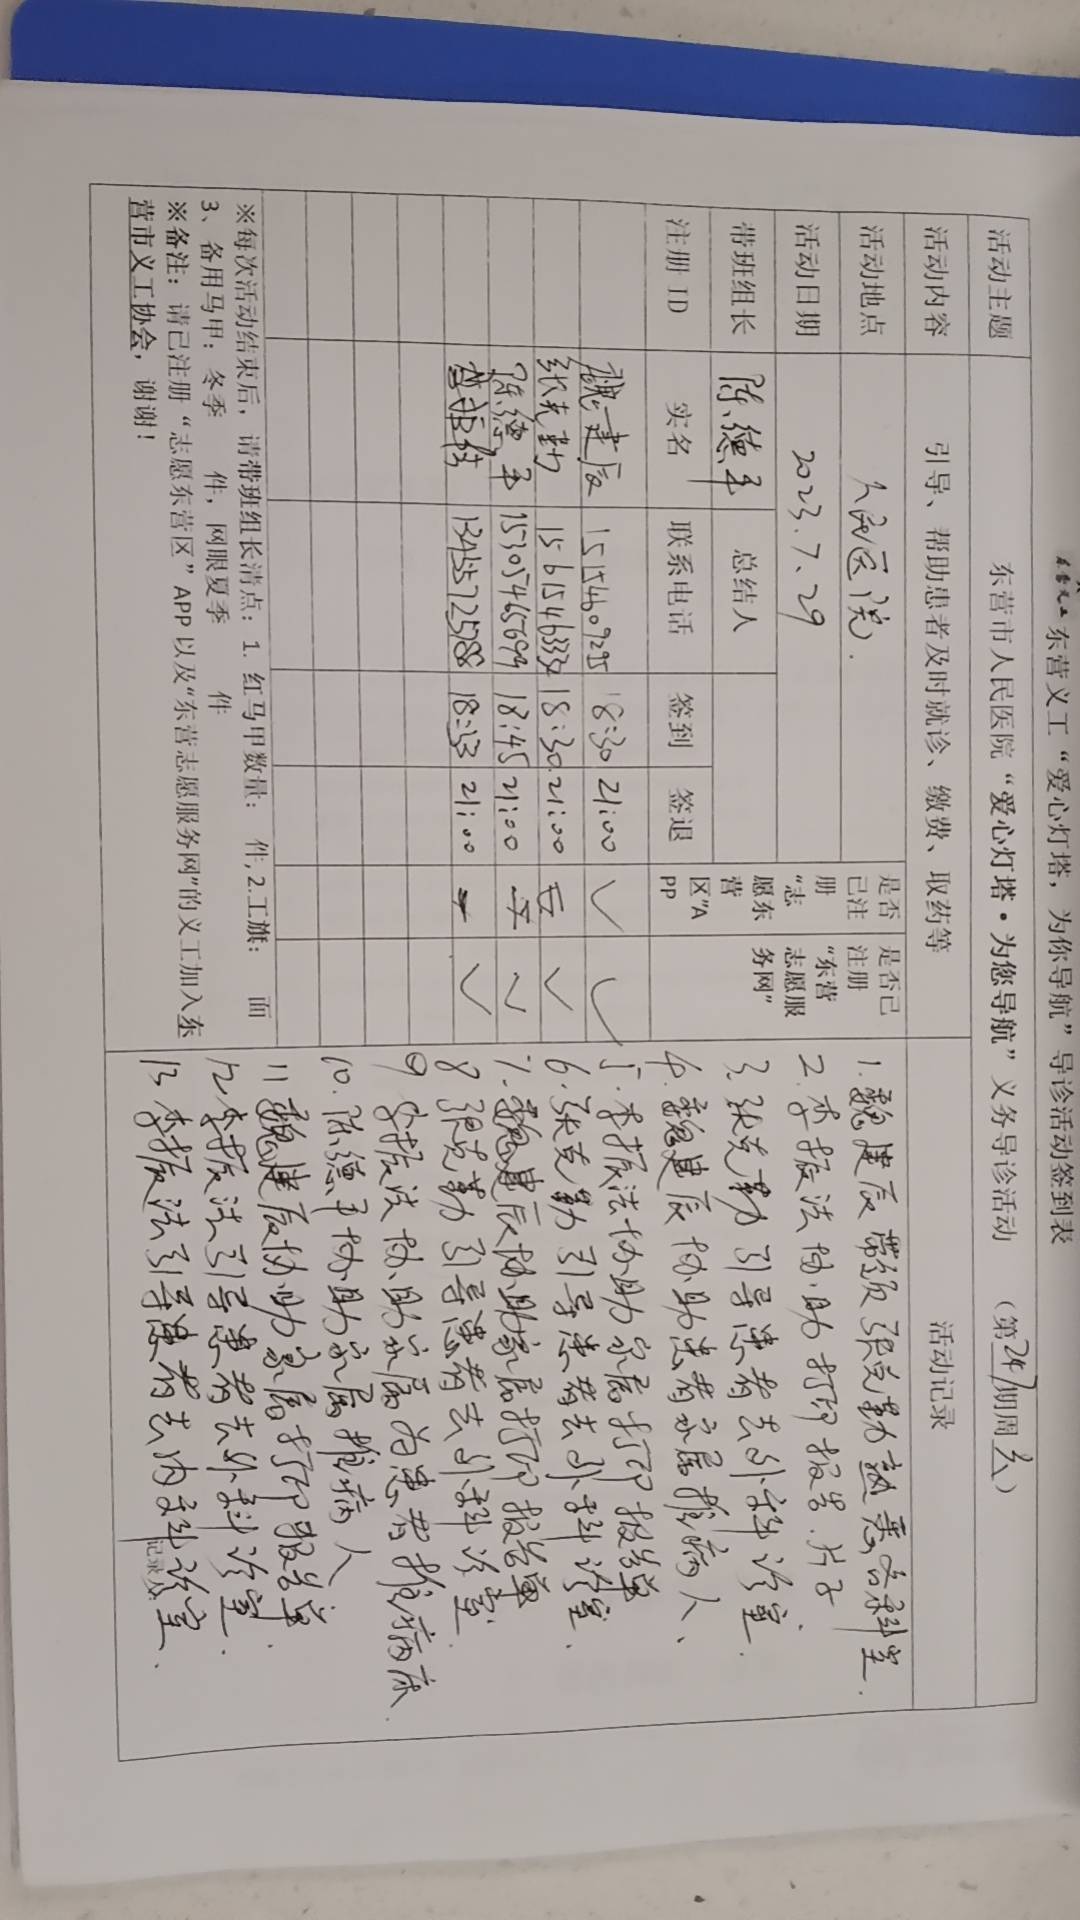 东营义工“爱心灯塔，为你导航”导诊活动签到表
活动主题 东营市人民医院“爱心灯塔·为您导航”义务导诊活动 （第24期周六）
活动内容 引导、帮助患者及时就诊、缴费、取药等 活动记录
活动地点 人民医院.
活动日期 2023.7.29
带班组长 陈德平 总结人
注册 ID 实名 联系电话 签到 签退 是否已注册“志愿东营区”APP 是否已注册“东营志愿服务网”
魏建辰 15154609295 18:30 21:00 ✓ ✓
张克勤 15615463332 18:30 21:00 ✓
陈德平 18:45 21:00 ✓
13455725788 18:53 21:00 ✓
※每次活动结束后，请带班组长清点：1. 红马甲数量： 件,2.工旗： 面
3、备用马甲：冬季 件，网眼夏季 件
※备注：请已注册“志愿东营区”APP以及“东营志愿服务网”的义工加入东
营市义工协会，谢谢！
1.魏建辰带领张克勤 患者科室.
2.李振法协助打印报告.片子
3.张克勤引导患者去外科诊室.
4.魏建辰协助患者家属推病人、
5.李振法协助家属打印报告单
6.张克勤引导患者去外科诊室.
7.魏建辰协助家属打印报告单
8 张克勤引导患者去外科诊室.
9 李振法协助家属为患者推病床.
10.陈德平协助家属推病人
11 魏建辰协助家属打印报告单.
12.李振法引导患者去外科诊室.
13 李振法引导患者去内科诊室.
记录人